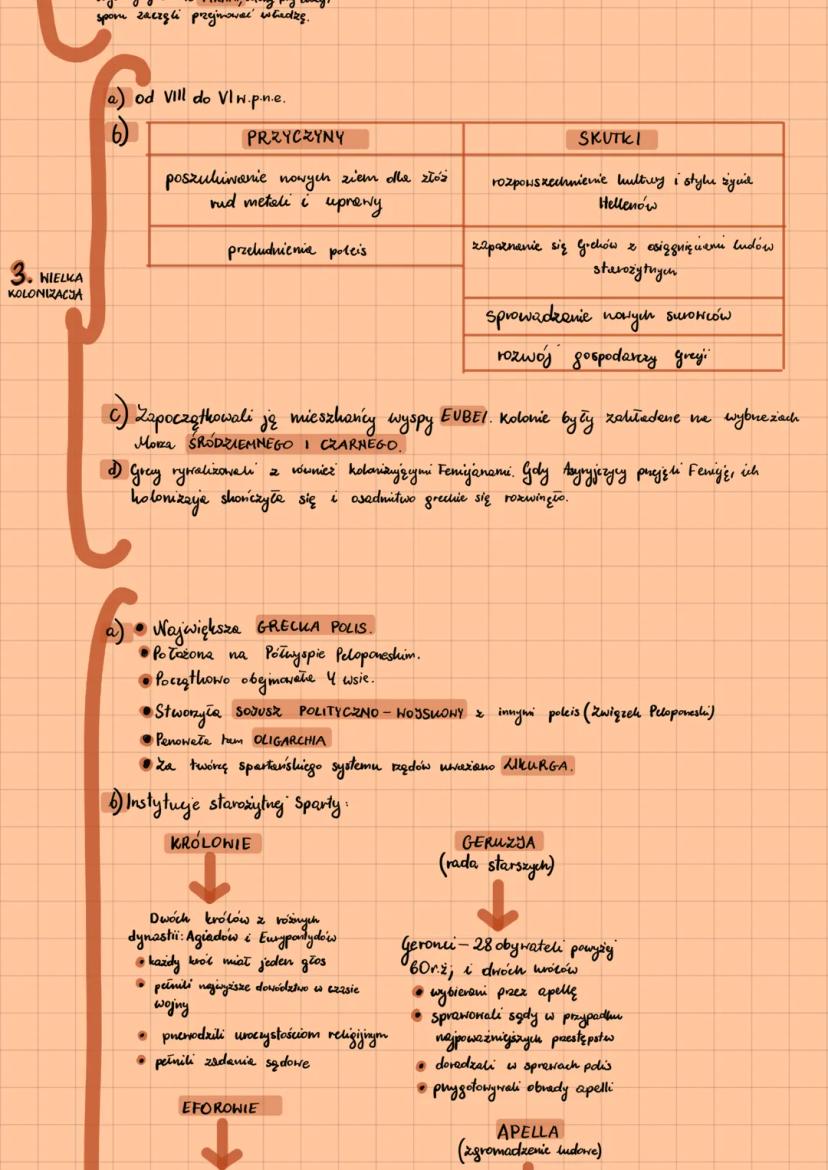 sporu zaczęli przejmować władzę.
a) od VIII do VI w.p.n.e.
b)
PRZYCZYNY
SKUTKI
poszukiwanie nowych ziem dla złóż
rud metali i uprawy
rozpowszechnienie kultury i stylu życia
Hellenów
przeludnienia poleis
zapoznanie się Greków z osiągnięciami ludów
starożytnych
3. WIELKA
KOLONIZACJA
sprowadzanie nowych surowców
rozwój gospodarczy Grecji
c) Zapoczątkowali ją mieszkańcy wyspy EUBEI. Kolonie były zakładane na wybrzeżach
Morza ŚRÓDZIEMNEGO I CZARNEGO.
d) Grecy rywalizowali z również kolonizującymi Fenicjanami. Gdy Asyryjczycy przejęli Fenicję, ich
kolonizacja skończyła się i osadnictwo greckie się rozwinęło.
a) • Największa GRECKA POLIS.
• Położona na Półwyspie Peloponeskim.
• Początkowo obejmowała 4 wsie.
• Stworzyła SOJUSZ POLITYCZNO-WOJSKOWY z innymi poleis (Związek Peloponeski)
• Panowała tam OLIGARCHIA
• Za twórcę spartańskiego systemu rządów uważano LIKURGA.
b) Instytucje starożytnej Sparty:
KRÓLOWIE
Dwóch królów z różnych
dynastii: Agiadów i Eurypontydów
• każdy król miał jeden głos
• pełnili najwyższe dowództwo w czasie
wojny
• przewodzili uroczystościom religijnym
• pełnili zadania sądowe
GERUZJA
(rada starszych)
Geronci – 28 obywateli powyżej
60 r.ż, i dwóch królów
• wybierani przez apellę
• sprawowali sądy w przypadku
najpoważniejszych przestępstw
• doradzali w sprawach polis
• przygotowywali obrady apelli
EFOROWIE
APELLA
(zgromadzenie ludowe)